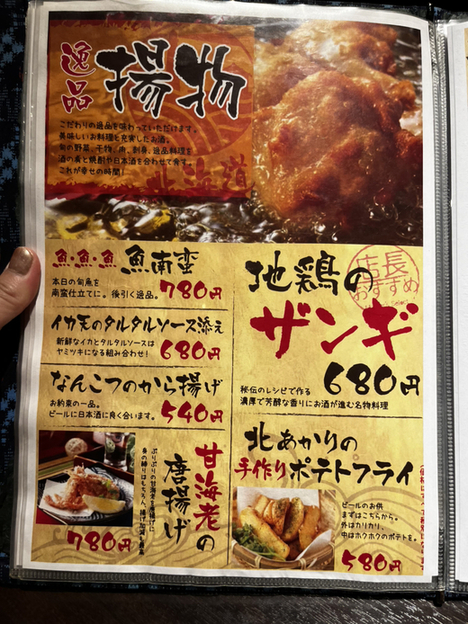 逸品
揚物
こだわりの逸品を味わっていただけます。
美味しいお料理と充実したお酒。
旬の野菜、干物、肉、刺身、逸品料理を
酒の肴と焼酎や日本酒を合わせて食す。
これが幸せの時間!
北海道
魚・魚・魚 魚南蛮
本日の旬魚を
南蛮仕立てに。後引く逸品。
780円
イカ天のタルタルソース添え
新鮮なイカとタルタルソースは
ヤミツキになる組み合わせ!
680円
なんこつのから揚げ
お約束の一品。
ビールに日本酒に良く合います。
540円
甘海老の
唐揚げ
ぷりぷりの甘海老を唐揚げに。
780円
店長
おすすめ
地鶏の
ザンギ
680円
秘伝のレシピで作る
濃厚で芳醇な香りにお酒が進む名物料理
北あかりの
手作りポテトフライ
ビールのお供
まずはこちらから。
外はカリカリ、
中はホクホクのポテトを。
580円